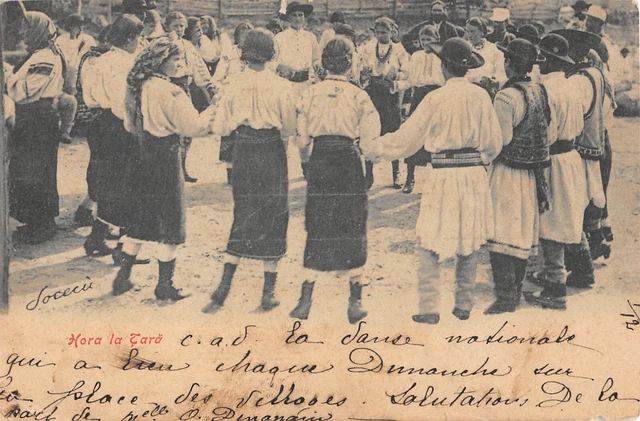 Socecŭ
Hora la Țară c. a. d. La danse nationale
qui a lieu chaque Dimanche sur
la place des villages. Salutations De la
part de Melle